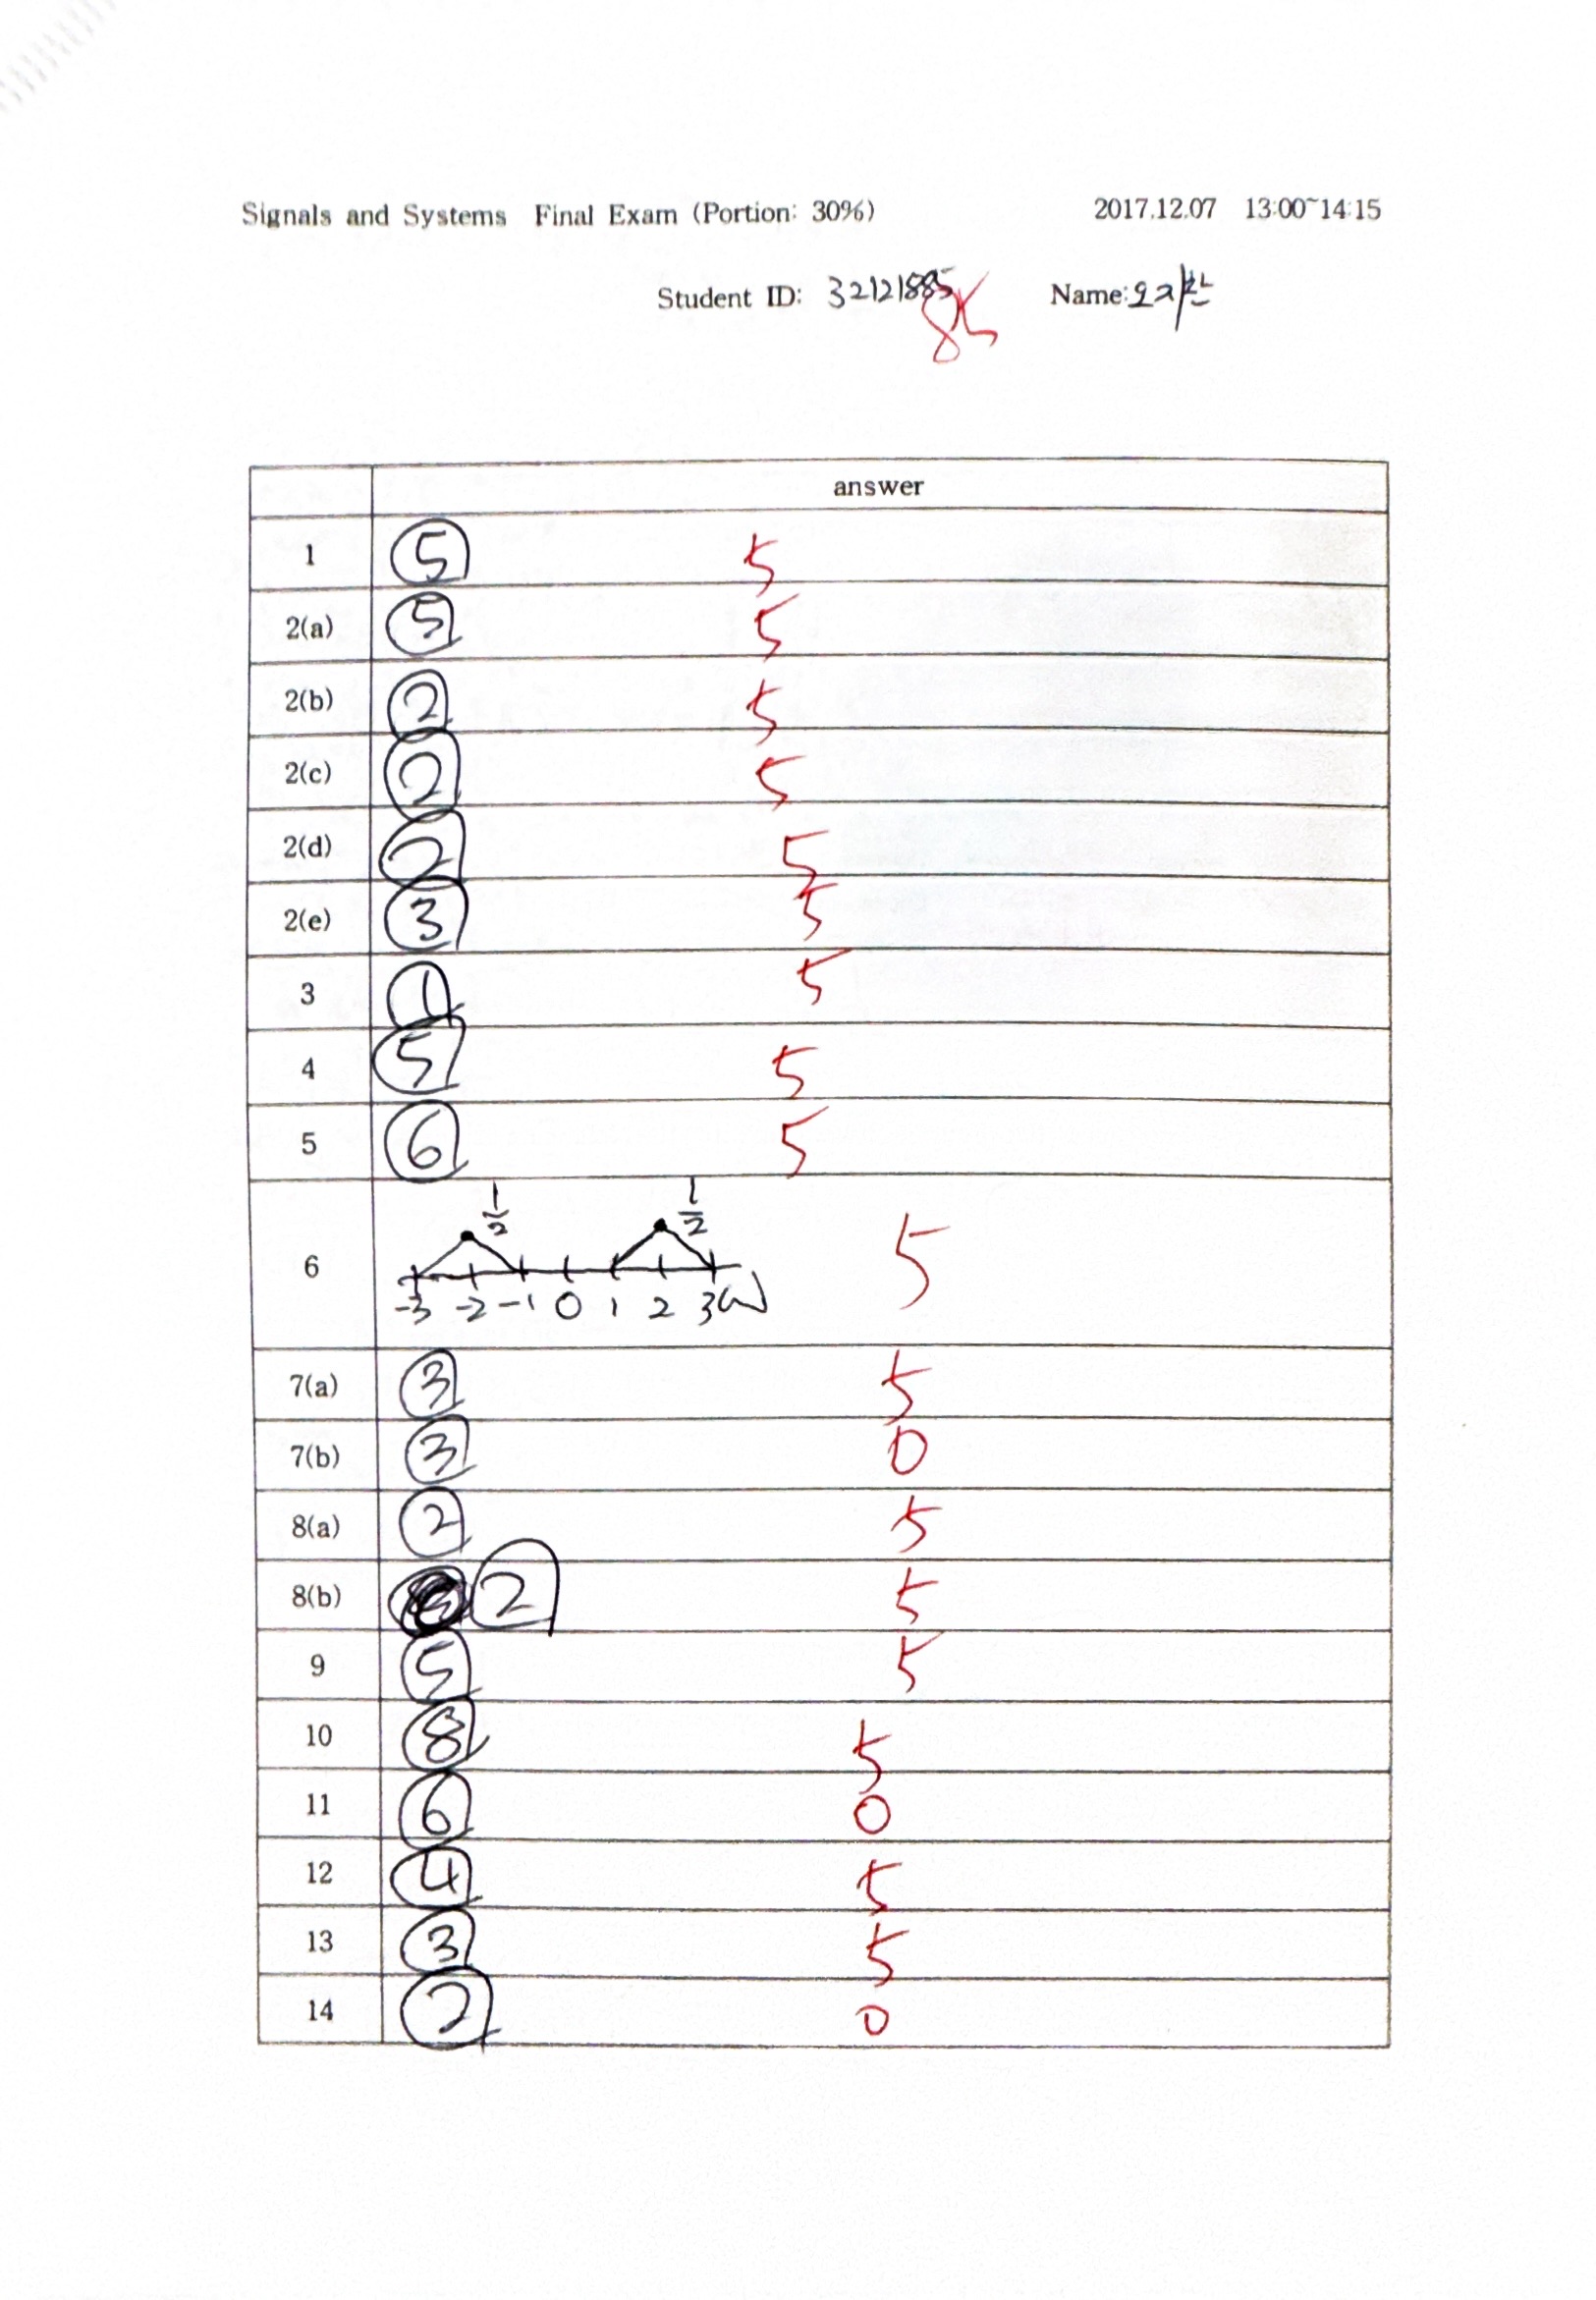 Signals and Systems Final Exam (Portion: 30%) 2017.12.07 13:00~14:15
Student ID: 32121885 Name:
85
answer
1 ⑤ 5
2(a) ⑤ 5
2(b) ② 5
2(c) ② 5
2(d) ② 5
2(e) ③ 5
3 ① 5
4 ⑤ 5
5 ⑥ 5
1/2 1/2
6 5
-3 -2 -1 0 1 2 3 ω
7(a) ③ 5
7(b) ③ 0
8(a) ② 5
8(b) ② 5
9 ⑤ 5
10 ⑧ 5
11 ⑥ 0
12 ④ 5
13 ③ 5
14 ② 0